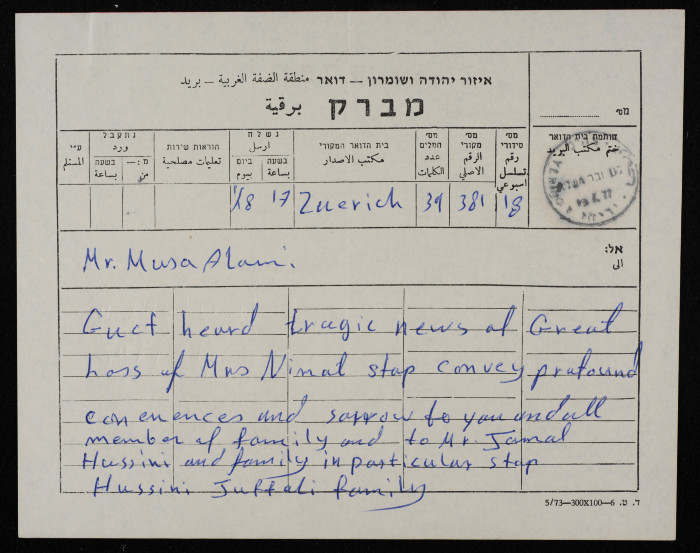 איזור יהודה ושומרון – דואר منطقة الضفة الغربية – بريد
מברק برقية
מס'
חותמת בית הדואר
ختم مكتب البريد
מס' סידורי
رقم تسلسل اسبوعي
מס' מקורי
الرقم الاصلي
מס' המלים
عدد الكلمات
בית הדואר המקורי
مكتب الاصدار
נשלח
ارسل
בשעה
بساعة
ביום
بيوم
הוראות שירות
تعليمات مصلحية
נתקבל
ورد
בשעה
بساعة
מ:—
من
ע״י
المستلم
18 381 39 Zuerich 17 1/8
אל:
الى
Mr. Musa Alami.
Guct heard tragic news of Great
Loss of Mrs Nimat stop convey profound
conenences and sorrow to you and all
member of family and to Mr. Jamal
Hussini and family in particular stop
Hussini Juffali family
5/73—300X100—6 .ד. ט